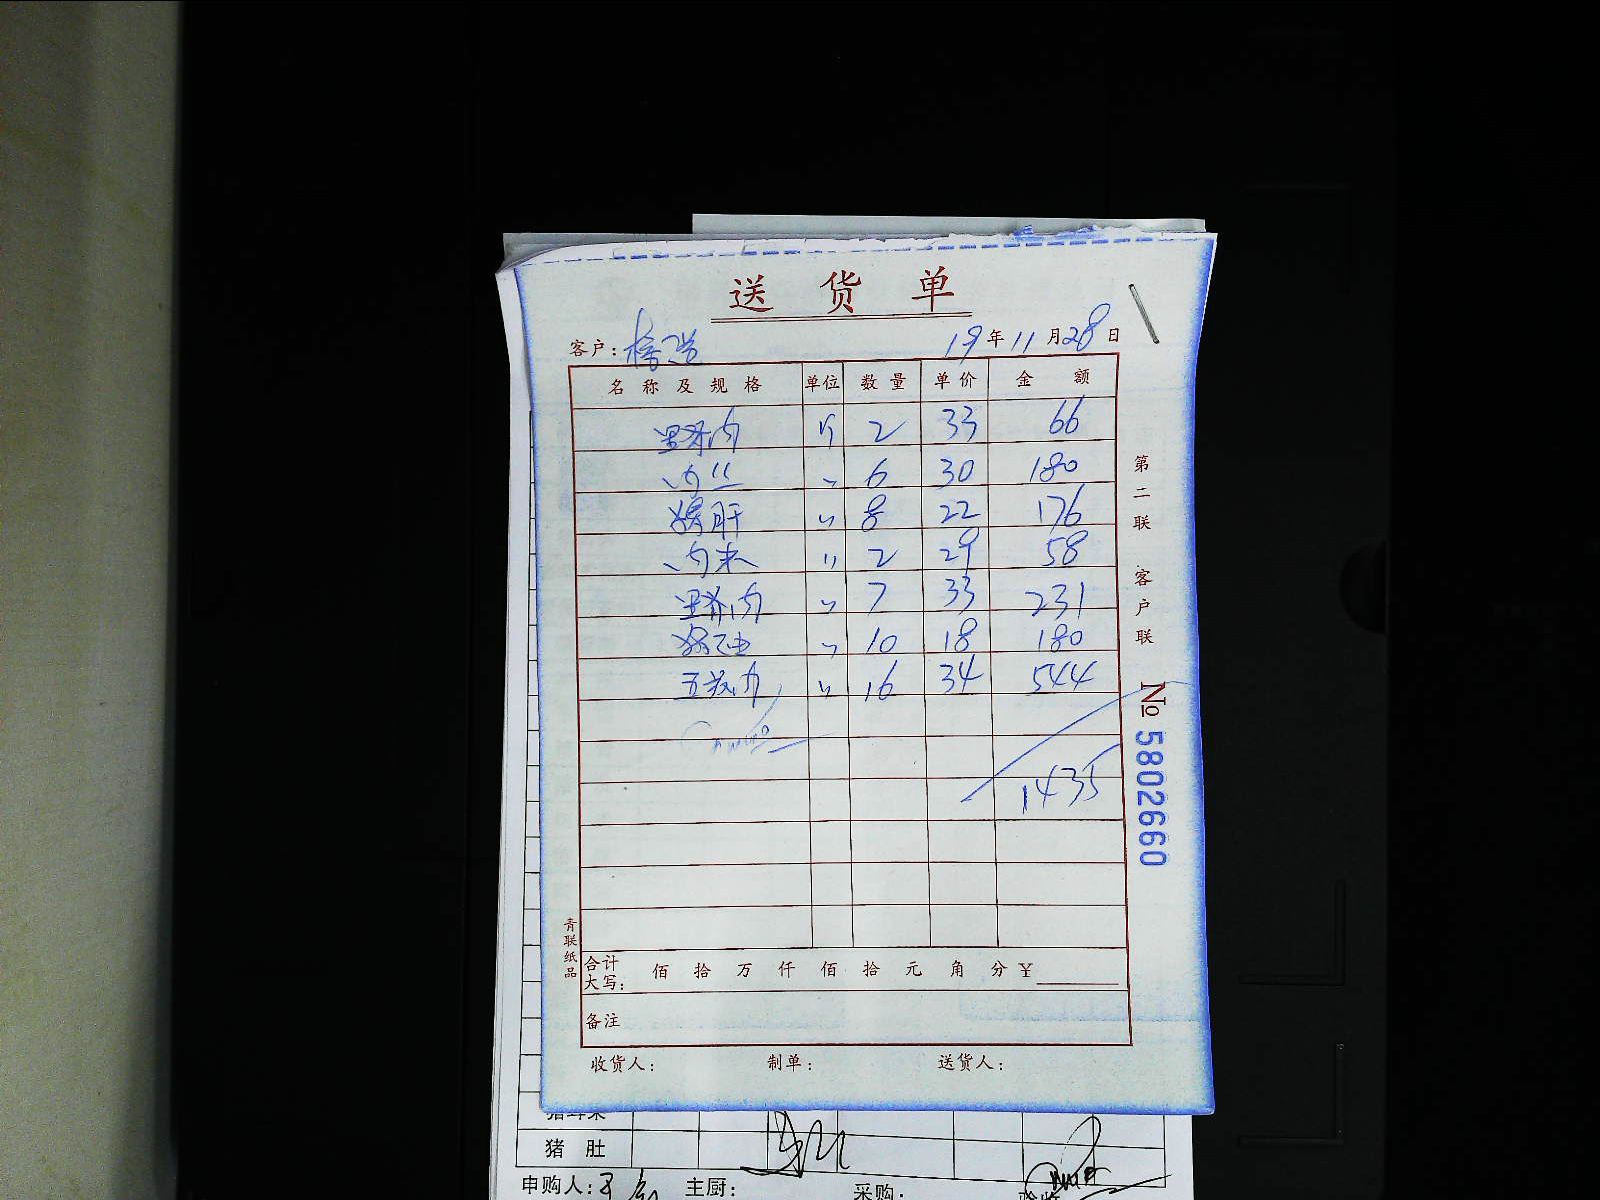 送 货 单
客户: 19年11月28日
名称及规格 单位 数量 单价 金额
里脊肉 斤 2 33 66
肉丝 〃 6 30 180
猪肝 〃 8 22 176
肉末 〃 2 29 58
里脊肉 〃 7 33 231
〃 10 18 180
五花肉 〃 16 34 544
1435
合计大写: 佰 拾 万 仟 佰 拾 元 角 分 ¥
备注
收货人: 制单: 送货人:
第二联 客户联
№ 5802660
青联纸品
猪 肚
申购人: 主厨: 采购: